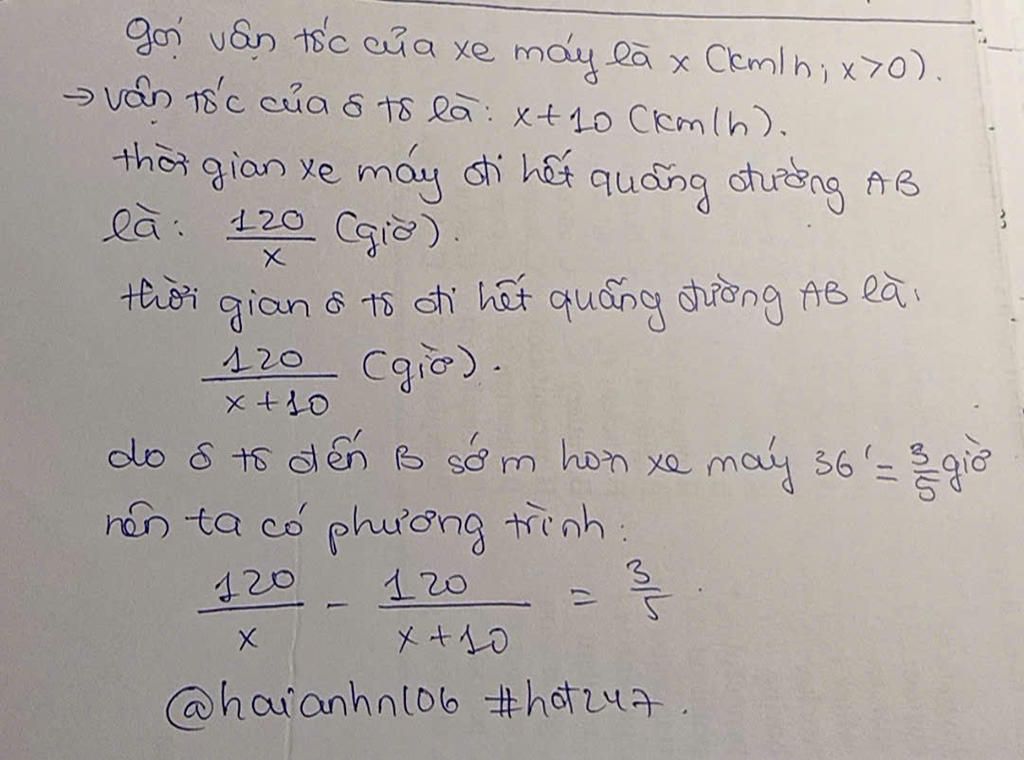 gọi vận tốc của xe máy là x (km/h; x>0).
→ vận tốc của ô tô là: x+10 (km/h).
thời gian xe máy đi hết quãng đường AB
là: 120/x (giờ).
thời gian ô tô đi hết quãng đường AB là:
120/(x+10) (giờ).
do ô tô đến B sớm hơn xe máy 36' = 3/5 giờ
nên ta có phương trình:
120/x - 120/(x+10) = 3/5.
@haianhn106 #hot247.